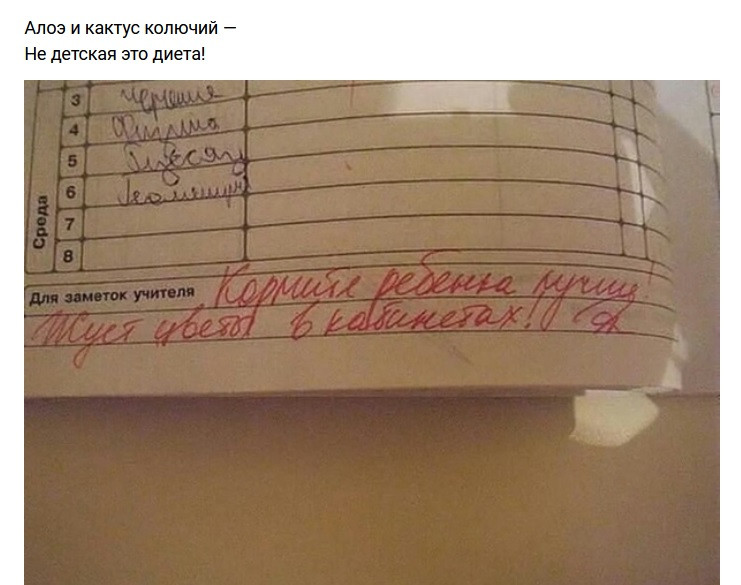 Алоэ и кактус колючий —
Не детская это диета!
Среда
3 Черчение
4 Физика
5
6 Геометрия
7
8
Для заметок учителя Кормите ребенка лучше!
Жует цветы в кабинетах!